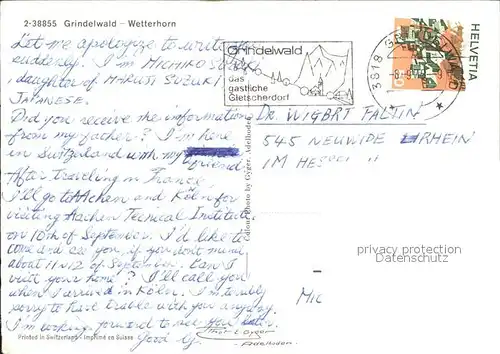 2-38855 Grindelwald – Wetterhorn
Let me apologize to write so
suddenly. I'm MICHIKO SUZUKI,
daughter of MAKOTO SUZUKI,
JAPANESE.
Did you receive the information
from my father? I'm here
in Switzerland with my
friend.
After traveling in France,
I'll go to AAchen and Köln for
visiting Aachen Tecnical Institute
on 10th of September. I'd like to
come and see you, if you don't mind,
about 11 or 12 of September. Can I
visit your home? I'll call you
when I arrived in Köln. I'm terribly
sorry to have trable with you anyway.
I'm looking forward to see you
Good by.
Printed in Switzerland - Imprimé en Suisse
Colour Photo by Gyger, Adelboden
Grindelwald
das
gastliche
Gletscherdorf
3818
HELVETIA
Dr. WIGBRT FALTIN
545 NEUWIDE RHEIN
IM
privacy protection
Datenschutz
Gyger
Adelboden